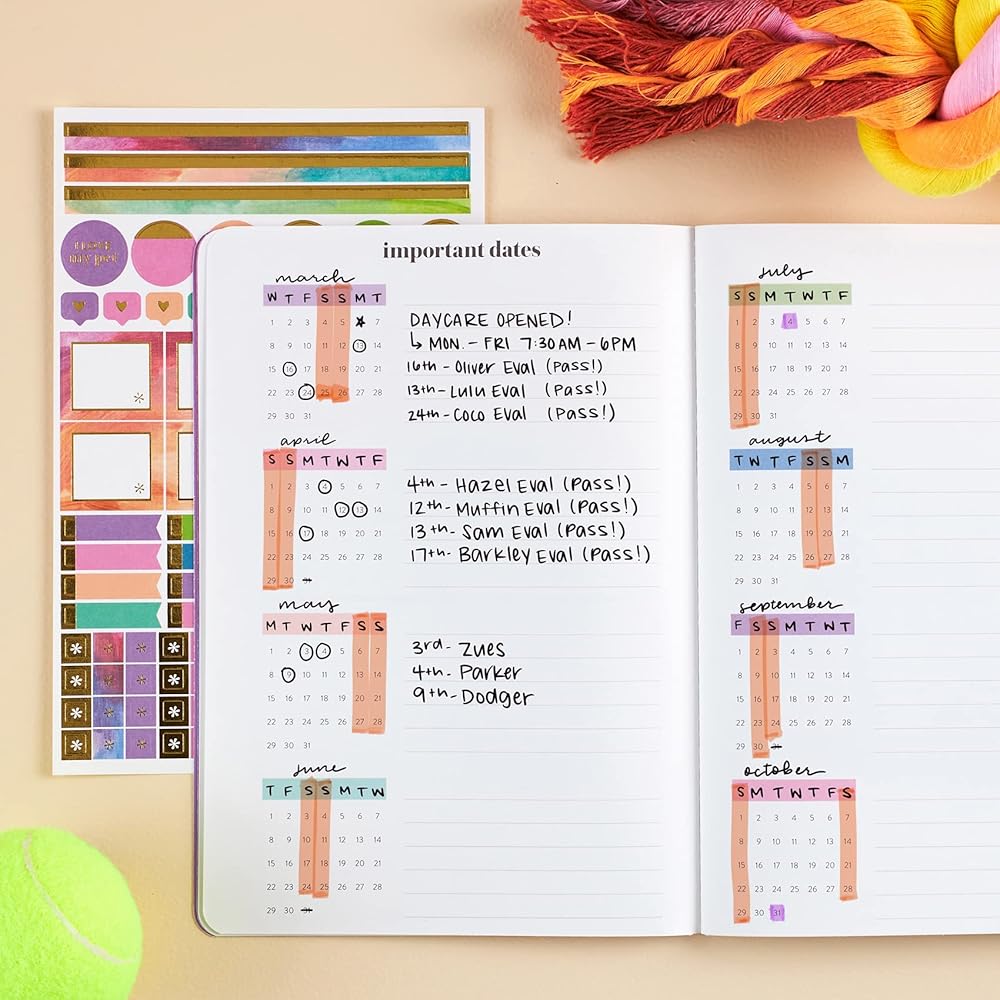 i love
my pet
important dates
march
W T F S S M T
1 2 3 4 5 ★ 7
8 9 10 11 12 13 14
15 16 17 18 19 20 21
22 23 24 25 26 27 28
29 30 31
DAYCARE OPENED!
↳ MON. - FRI 7:30 AM - 6PM
16th - Oliver Eval (Pass!)
13th - Lulu Eval (Pass!)
24th - Coco Eval (Pass!)
april
S S M T W T F
1 2 3 4 5 6 7
8 9 10 11 12 13 14
15 16 17 18 19 20 21
22 23 24 25 26 27 28
29 30 31
4th - Hazel Eval (Pass!)
12th - Muffin Eval (Pass!)
13th - Sam Eval (Pass!)
17th - Barkley Eval (Pass!)
may
M T W T F S S
1 2 3 4 5 6 7
8 9 10 11 12 13 14
15 16 17 18 19 20 21
22 23 24 25 26 27 28
29 30 31
3rd - Zues
4th - Parker
9th - Dodger
june
T F S S M T W
1 2 3 4 5 6 7
8 9 10 11 12 13 14
15 16 17 18 19 20 21
22 23 24 25 26 27 28
29 30 31
july
S S M T W T F
1 2 3 4 5 6 7
8 9 10 11 12 13 14
15 16 17 18 19 20 21
22 23 24 25 26 27 28
29 30 31
august
T W T F S S M
1 2 3 4 5 6 7
8 9 10 11 12 13 14
15 16 17 18 19 20 21
22 23 24 25 26 27 28
29 30 31
september
F S S M T W T
1 2 3 4 5 6 7
8 9 10 11 12 13 14
15 16 17 18 19 20 21
22 23 24 25 26 27 28
29 30 31
october
S M T W T F S
1 2 3 4 5 6 7
8 9 10 11 12 13 14
15 16 17 18 19 20 21
22 23 24 25 26 27 28
29 30 31